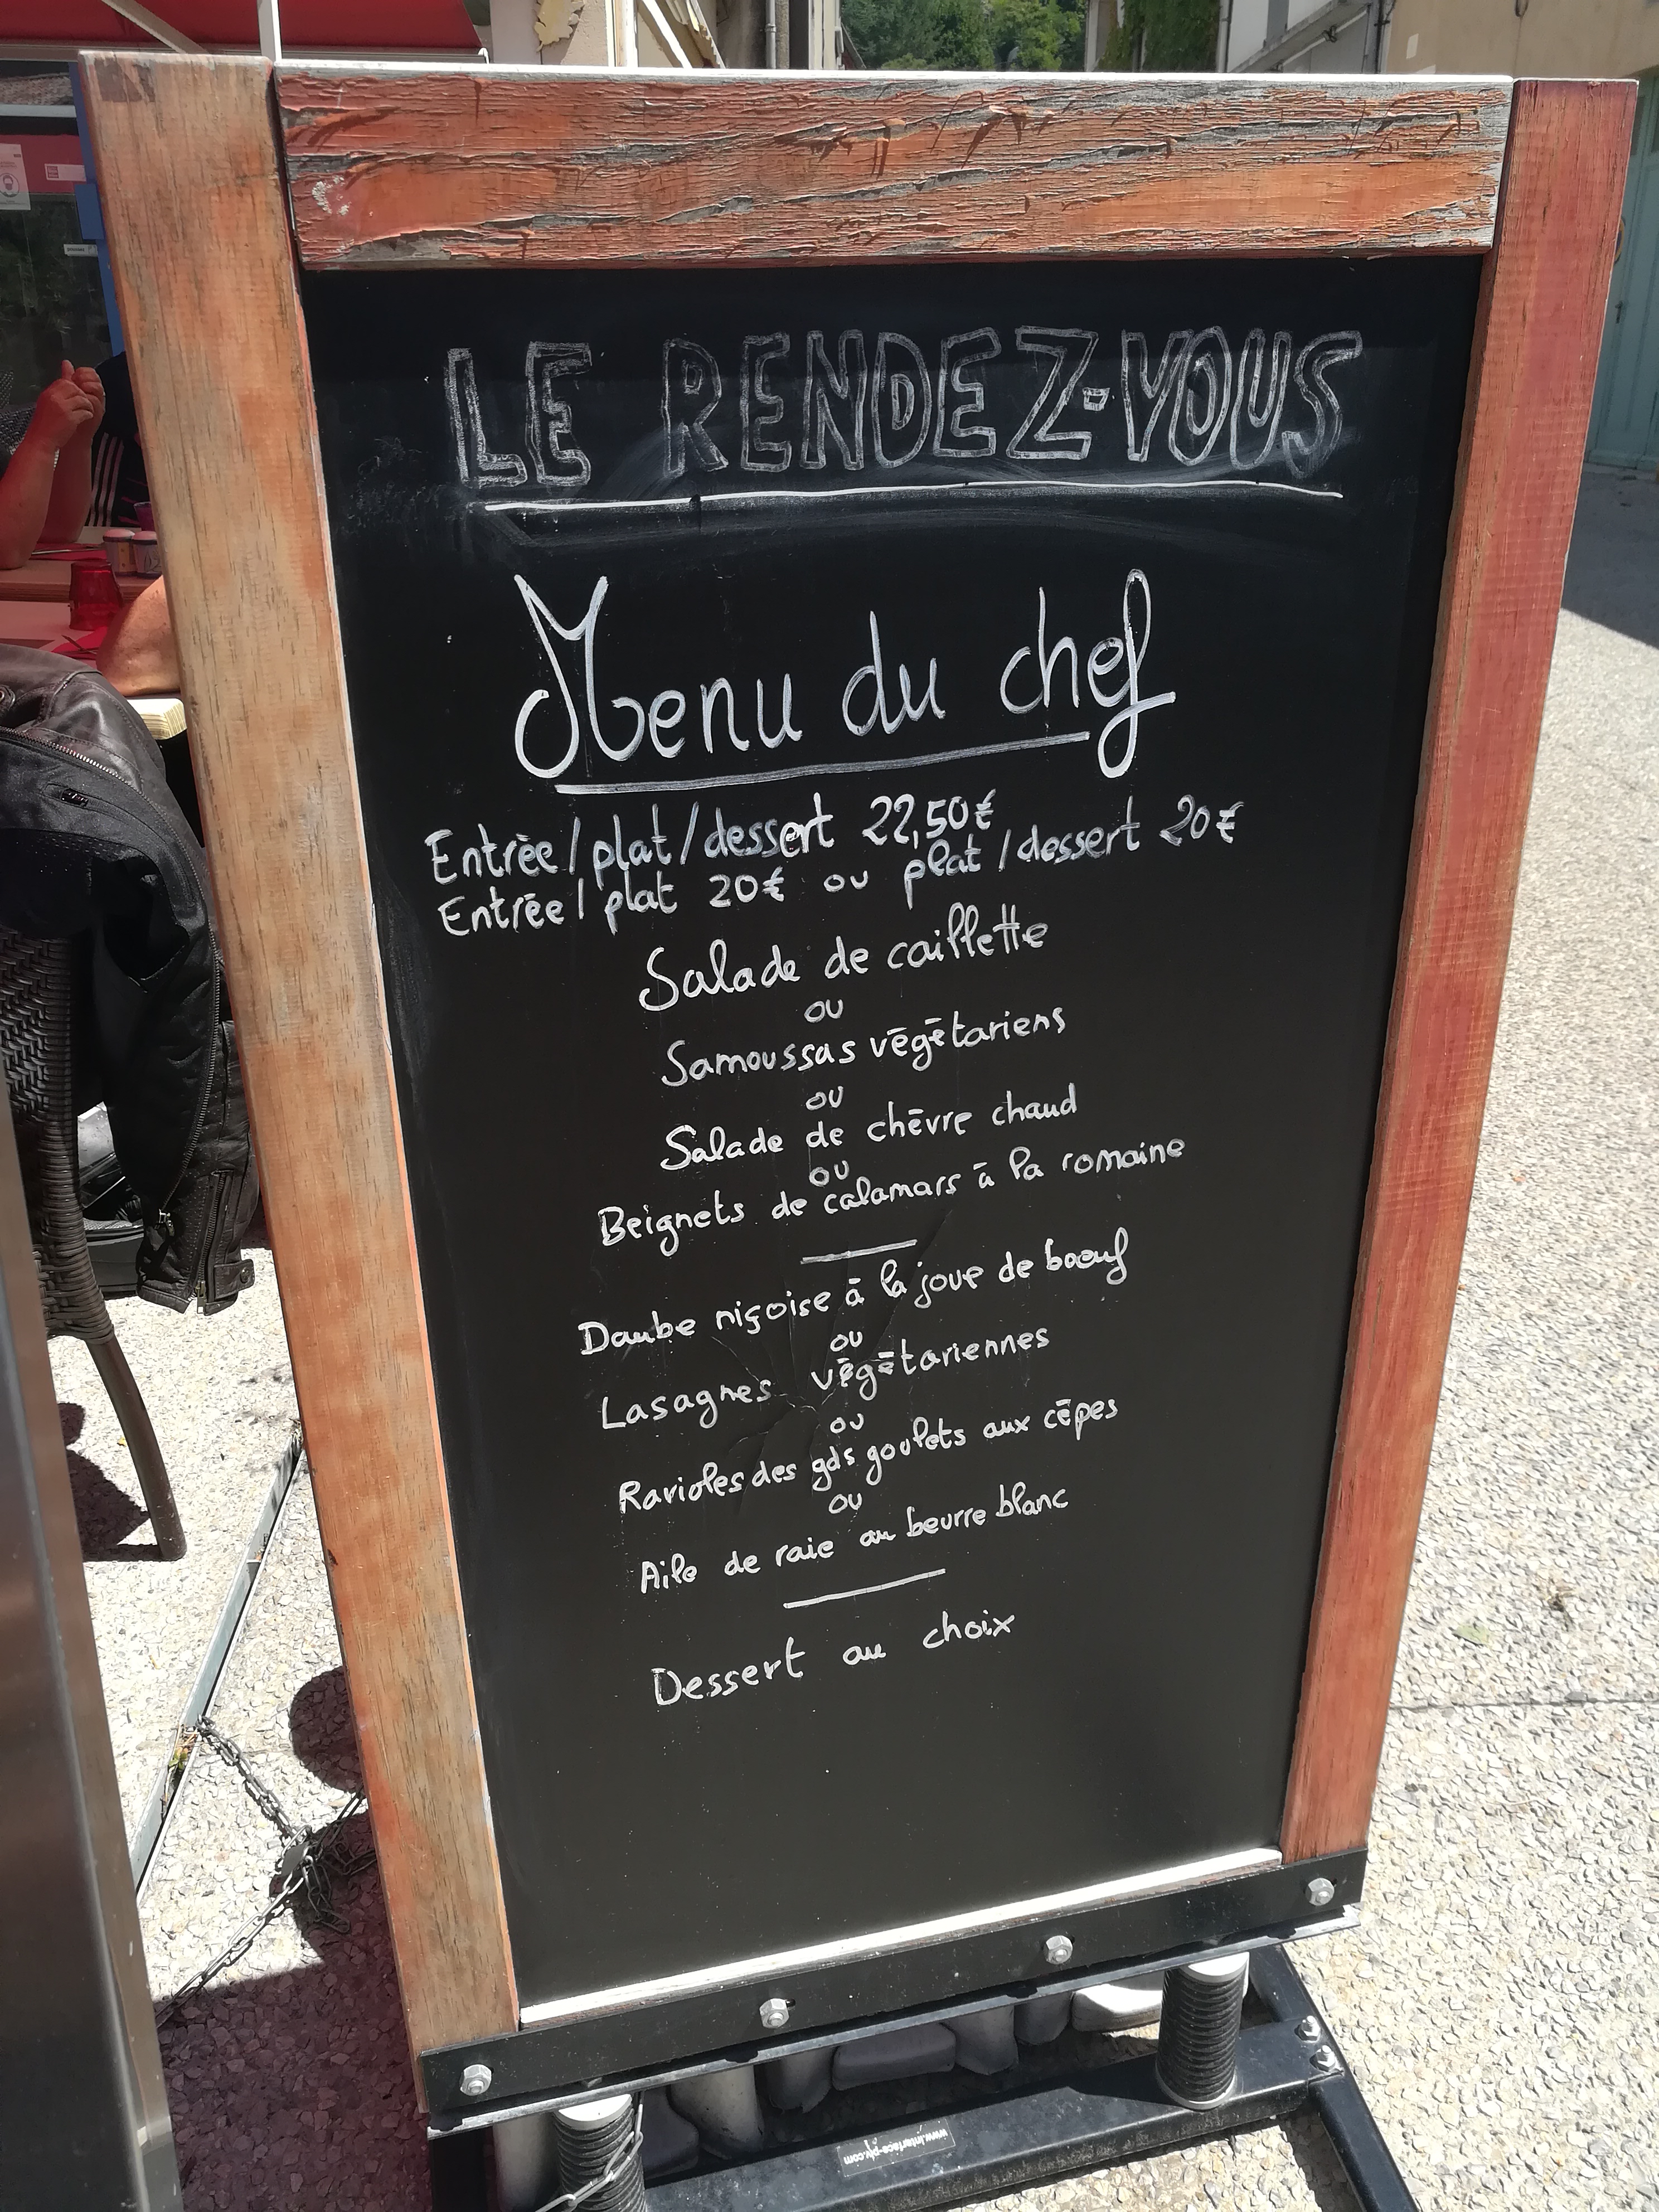 LE RENDEZ-VOUS
Menu du chef
Entrée/plat/dessert 22,50€
Entrée/plat 20€ ou plat/dessert 20€
Salade de caillette
ou
Samoussas végétariens
ou
Salade de chèvre chaud
ou
Beignets de calamars à la romaine
Daube niçoise à la joue de boeuf
ou
Lasagnes végétariennes
ou
Ravioles des gds goulets aux cèpes
ou
Aile de raie au beurre blanc
Dessert au choix
www.interface-plv.com